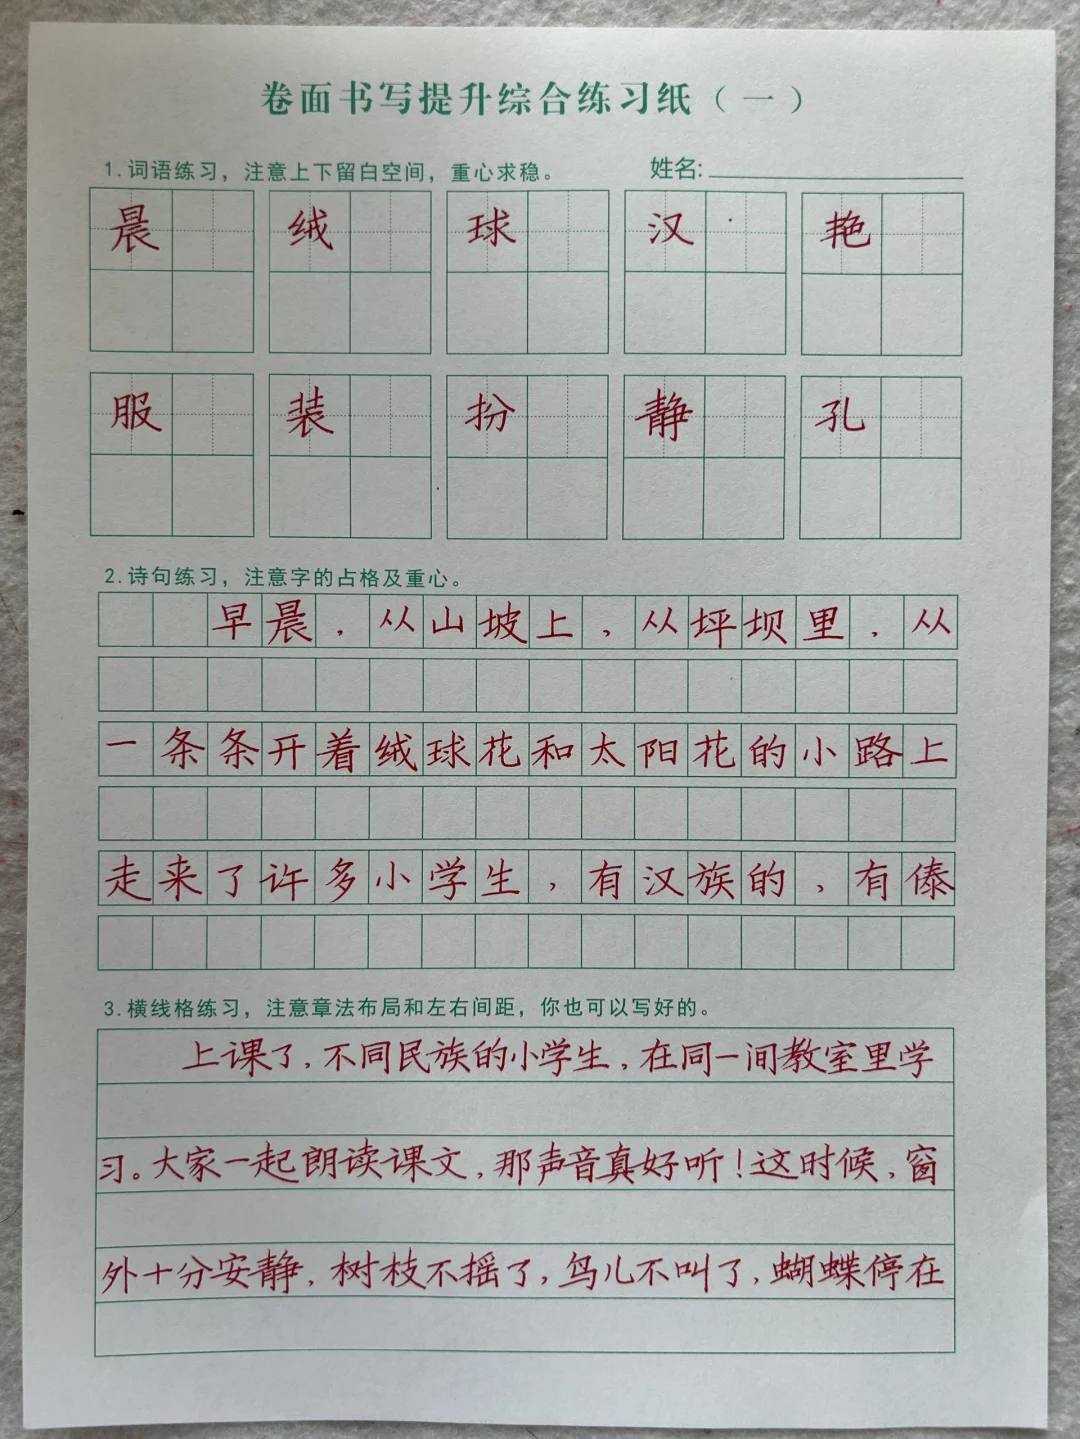 卷面书写提升综合练习纸（一）
1.词语练习，注意上下留白空间，重心求稳。 姓名:
晨 绒 球 汉 艳
服 装 扮 静 孔
2.诗句练习，注意字的占格及重心。
早晨，从山坡上，从坪坝里，从
一条条开着绒球花和太阳花的小路上
走来了许多小学生，有汉族的，有傣
3.横线格练习，注意章法布局和左右间距，你也可以写好的。
上课了，不同民族的小学生，在同一间教室里学
习。大家一起朗读课文，那声音真好听！这时候，窗
外十分安静，树枝不摇了，鸟儿不叫了，蝴蝶停在